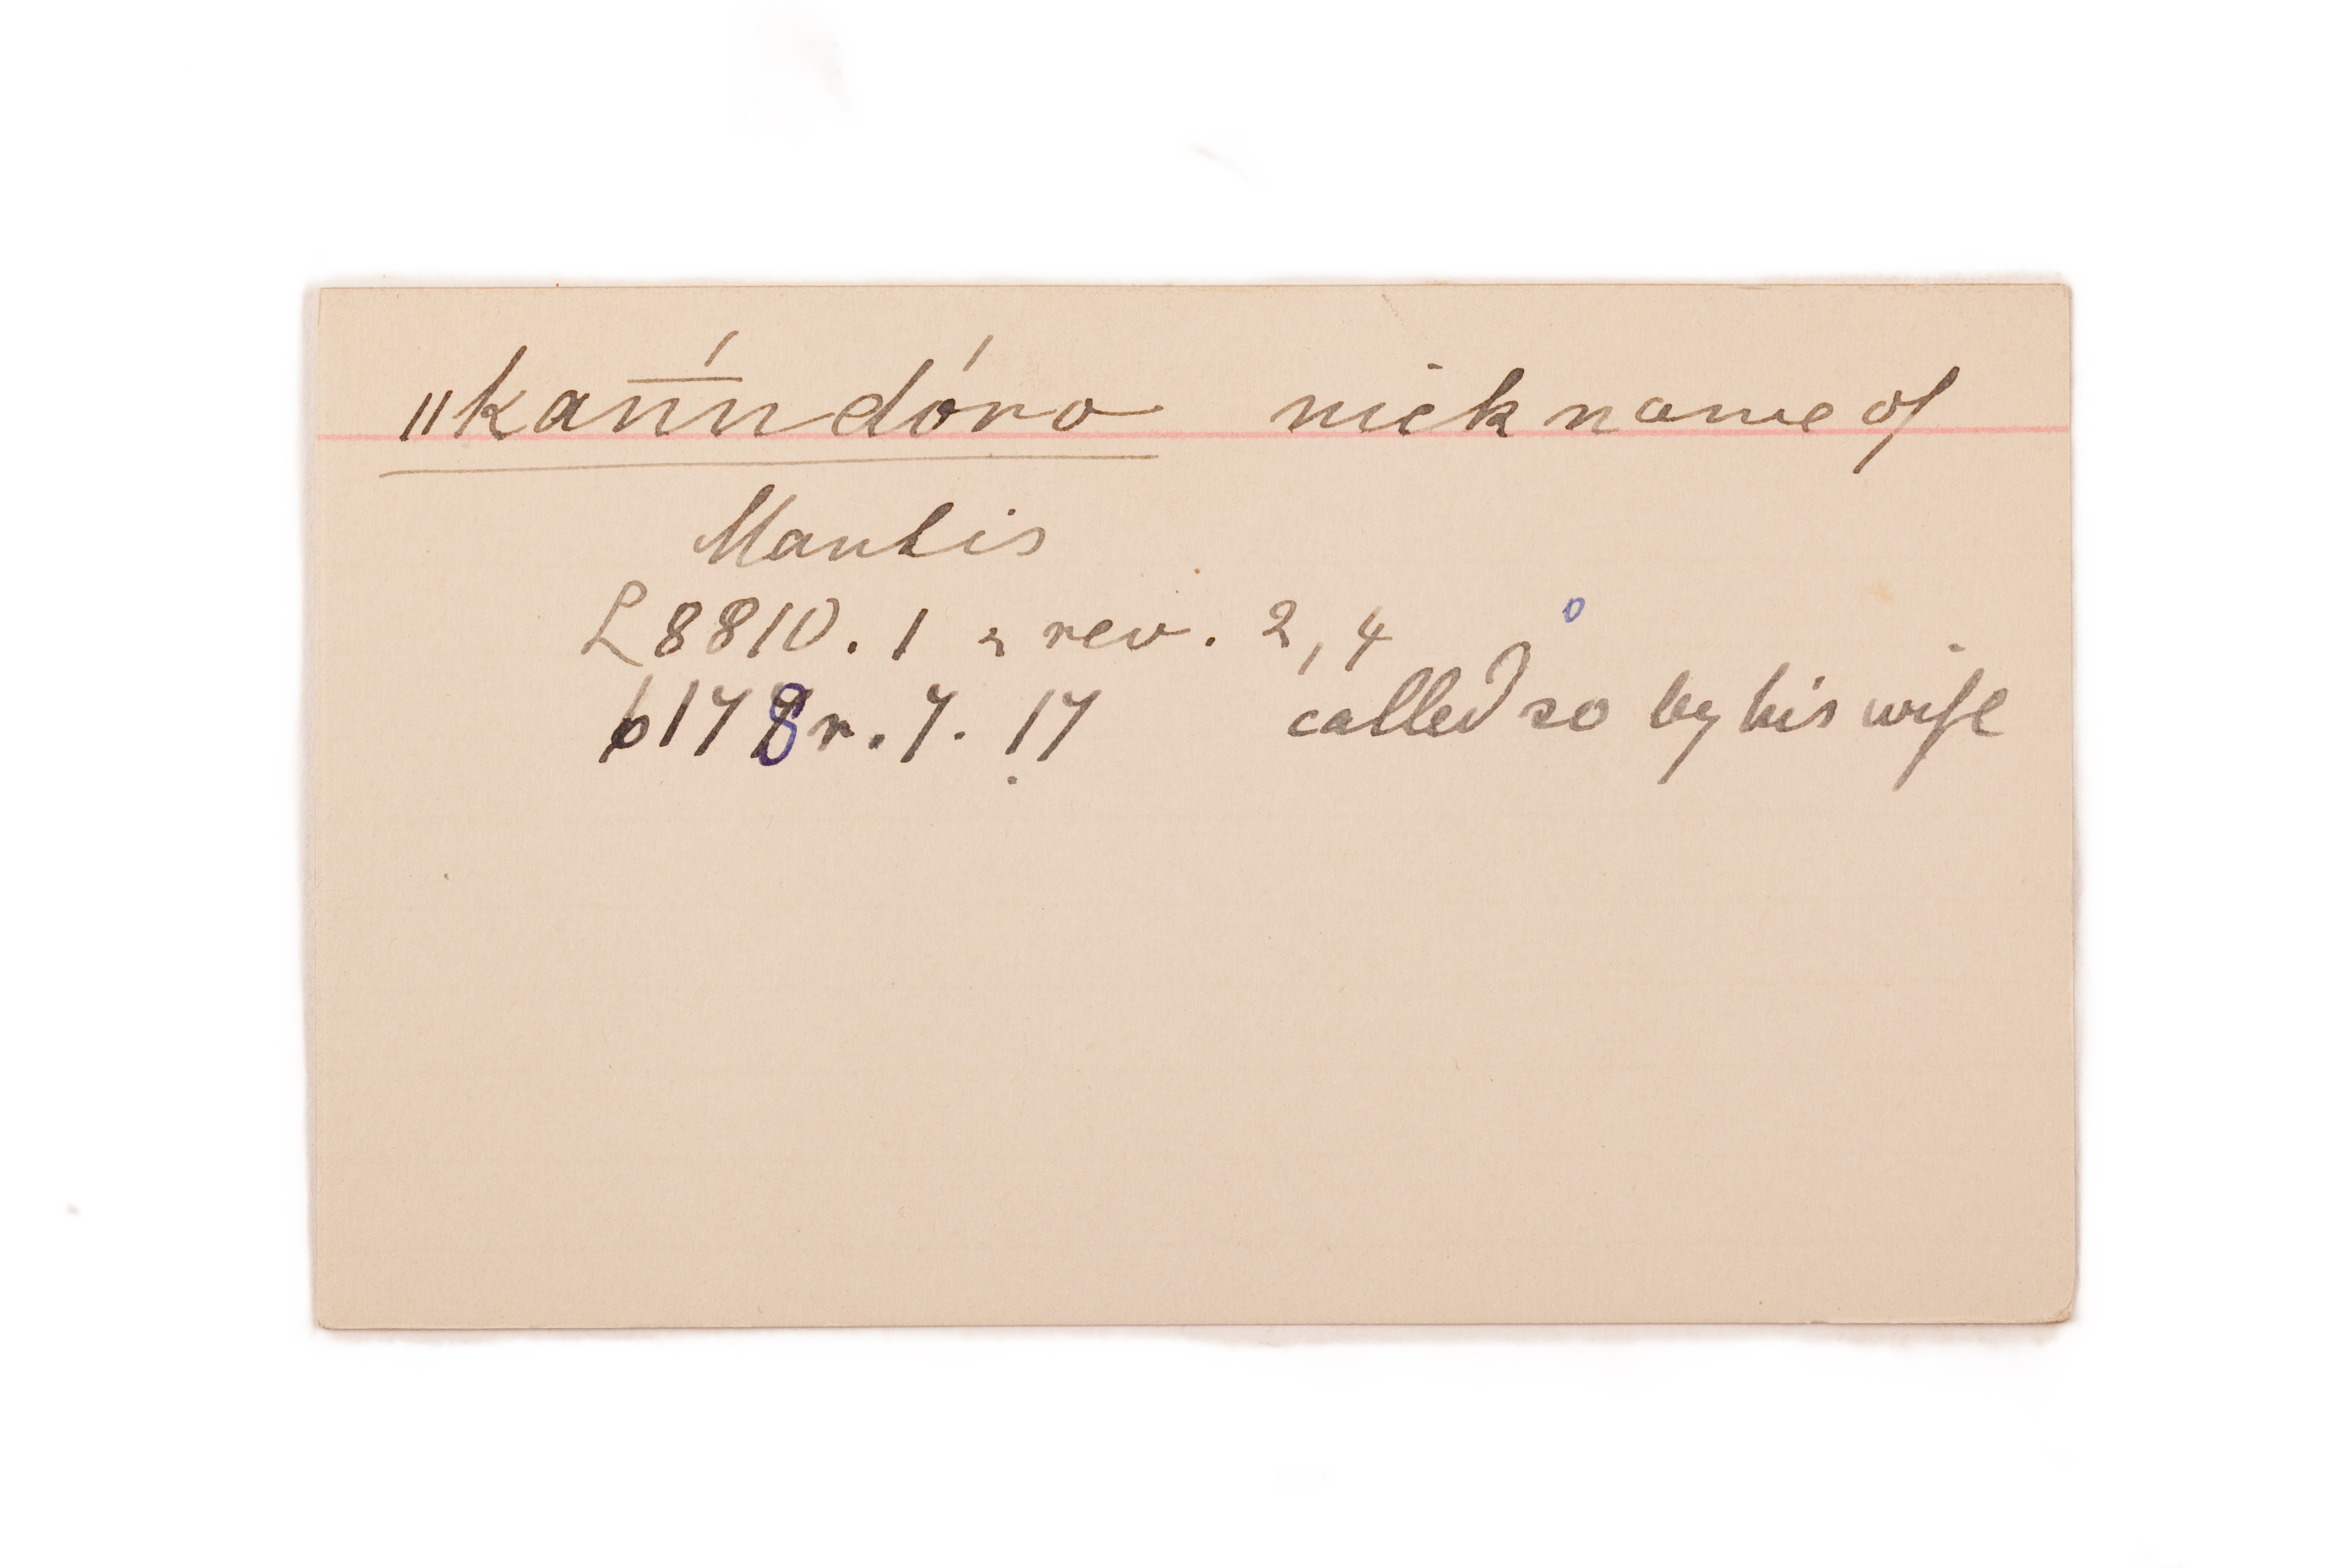 ǁkan̄́ndóro nickname of
Mantis
L 8810. 1 & rev. 2, 4
6178 r. 7. 17 called so by his wife